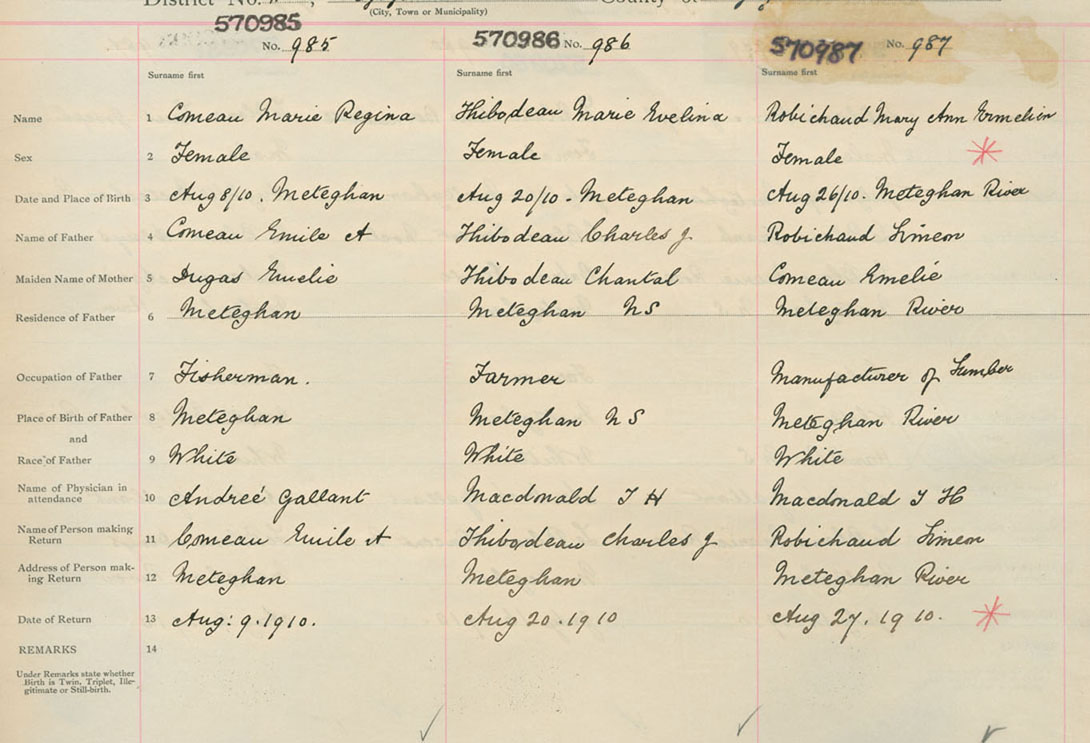 District No. County of
(City, Town or Municipality)
570985 570986 570987
No. 985 No. 986 No. 987
Surname first Surname first Surname first
Name 1 Comeau Marie Regina Thibodeau Marie Evelina Robichaud Mary Ann Ermelien
Sex 2 Female Female Female *
Date and Place of Birth 3 Aug 8/10. Meteghan Aug 20/10 - Meteghan Aug 26/10. Meteghan River
Name of Father 4 Comeau Emile A Thibodeau Charles J Robichaud Simeon
Maiden Name of Mother 5 Dugas Emelie Thibodeau Chantal Comeau Emelié
Residence of Father 6 Meteghan Meteghan NS Meteghan River
Occupation of Father 7 Fisherman. Farmer Manufacturer of Lumber
Place of Birth of Father 8 Meteghan Meteghan NS Meteghan River
and
Race of Father 9 White White White
Name of Physician in
attendance 10 Andreé Gallant Macdonald T H Macdonald T H
Name of Person making
Return 11 Comeau Emile A Thibodeau Charles J Robichaud Simeon
Address of Person mak-
ing Return 12 Meteghan Meteghan Meteghan River
Date of Return 13 Aug: 9.1910. Aug 20.1910 Aug 27.1910. *
REMARKS 14
Under Remarks state whether
Birth is Twin, Triplet, Ille-
gitimate or Still-birth.